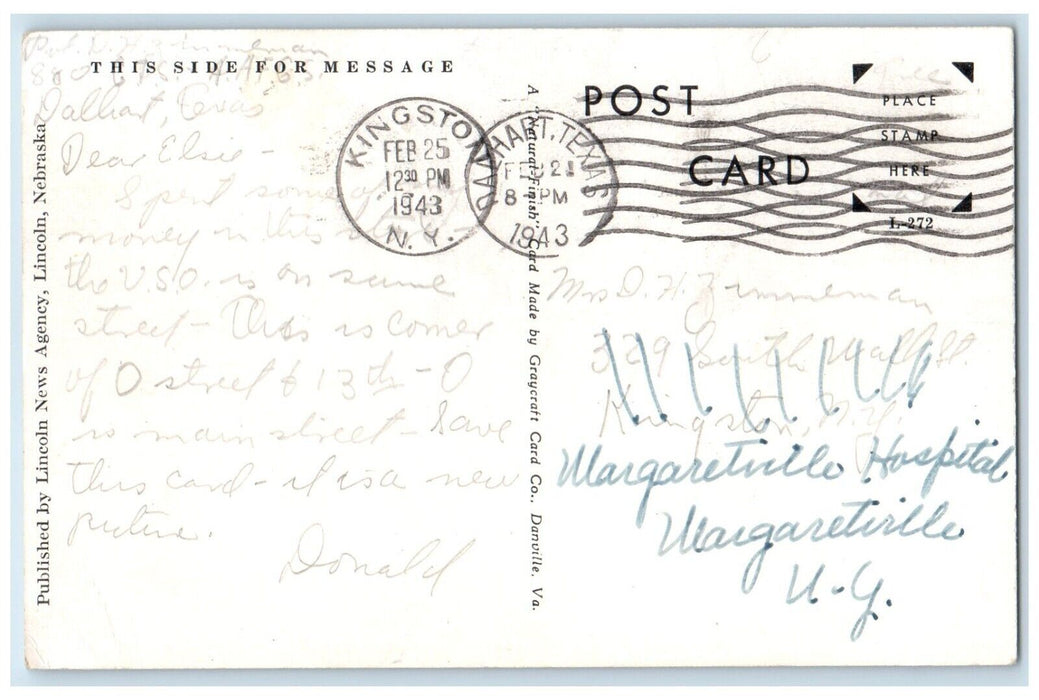 Pvt. D. H. Zimmerman
THIS SIDE FOR MESSAGE
Dalhart, Texas
Dear Elsie -
Spent some of
money in this
the U.S.O. is on same
street - This is corner
of O street & 13th - O
is main street - Save
this card - it is a new
picture.
Donald
Published by Lincoln News Agency, Lincoln, Nebraska
A "Natural-Finish" Card Made by Graycraft Card Co., Danville, Va.
KINGSTON
FEB 25
12 30 PM
1943
N.Y.
DALHART, TEXAS
8 PM
1943
POST
CARD
PLACE
STAMP
HERE
L-272
Free
Mrs D. H. Zimmerman
329 South Wall St.
Kingston, N.Y.
Margaretville Hospital
Margaretville
N.Y.